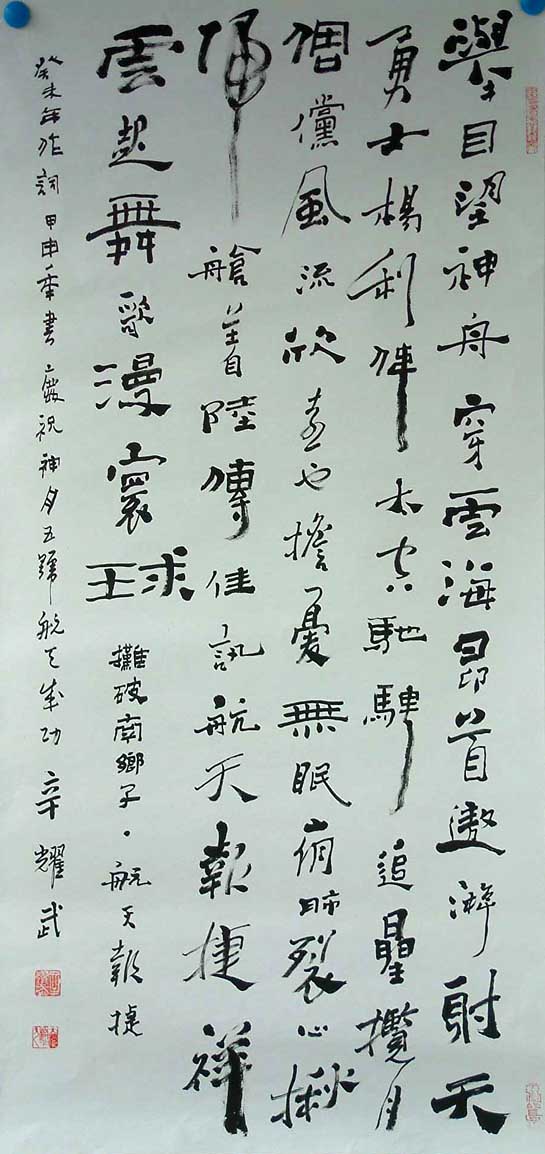 舉目望神舟穿雲海昂首遨游射天
勇士楊利伟太空馳騁追星攬月
倜儻風流欣喜也擔憂無眠肺裂心揪
歸艙着陸傳佳訊航天報捷祥
雲起舞歌漫寰球 攤破南鄉子·航天報捷
癸未年作詞甲申年書慶祝神舟五號航天成功 辛耀武